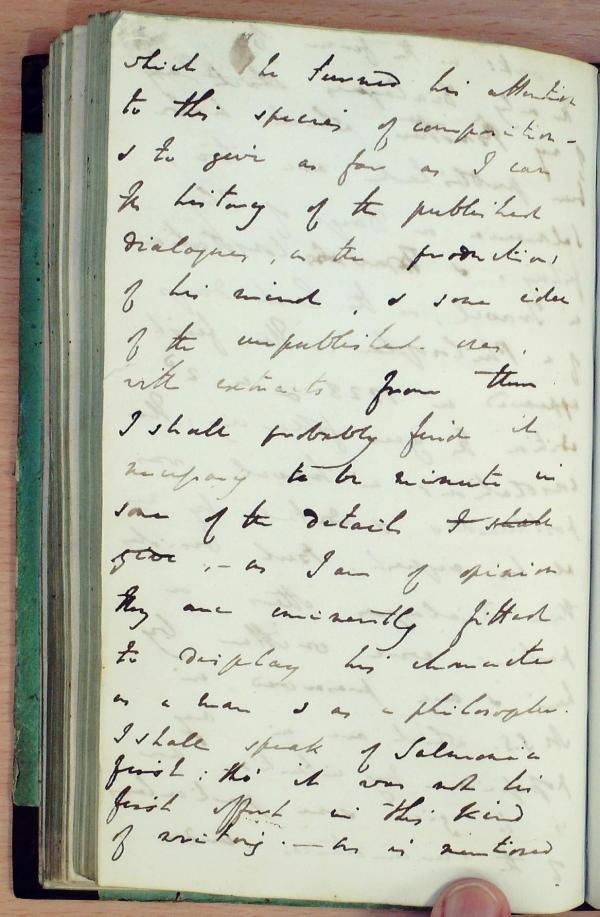 which he turned his attention
to this species of composition -
& to give as far as I can
the history of the published
dialogues, as the productions
of his mind, & some idea
of the unpublished ones,
with extracts from them.
I shall probably find it
necessary to be minute in
some of the details I shall
give, - as I am of opinion
they are eminently fitted
to display his character
as a man & as a philosopher.
I shall speak of Salmonia
first: tho' it was not his
first effort in this kind
of writing. - as is mentioned